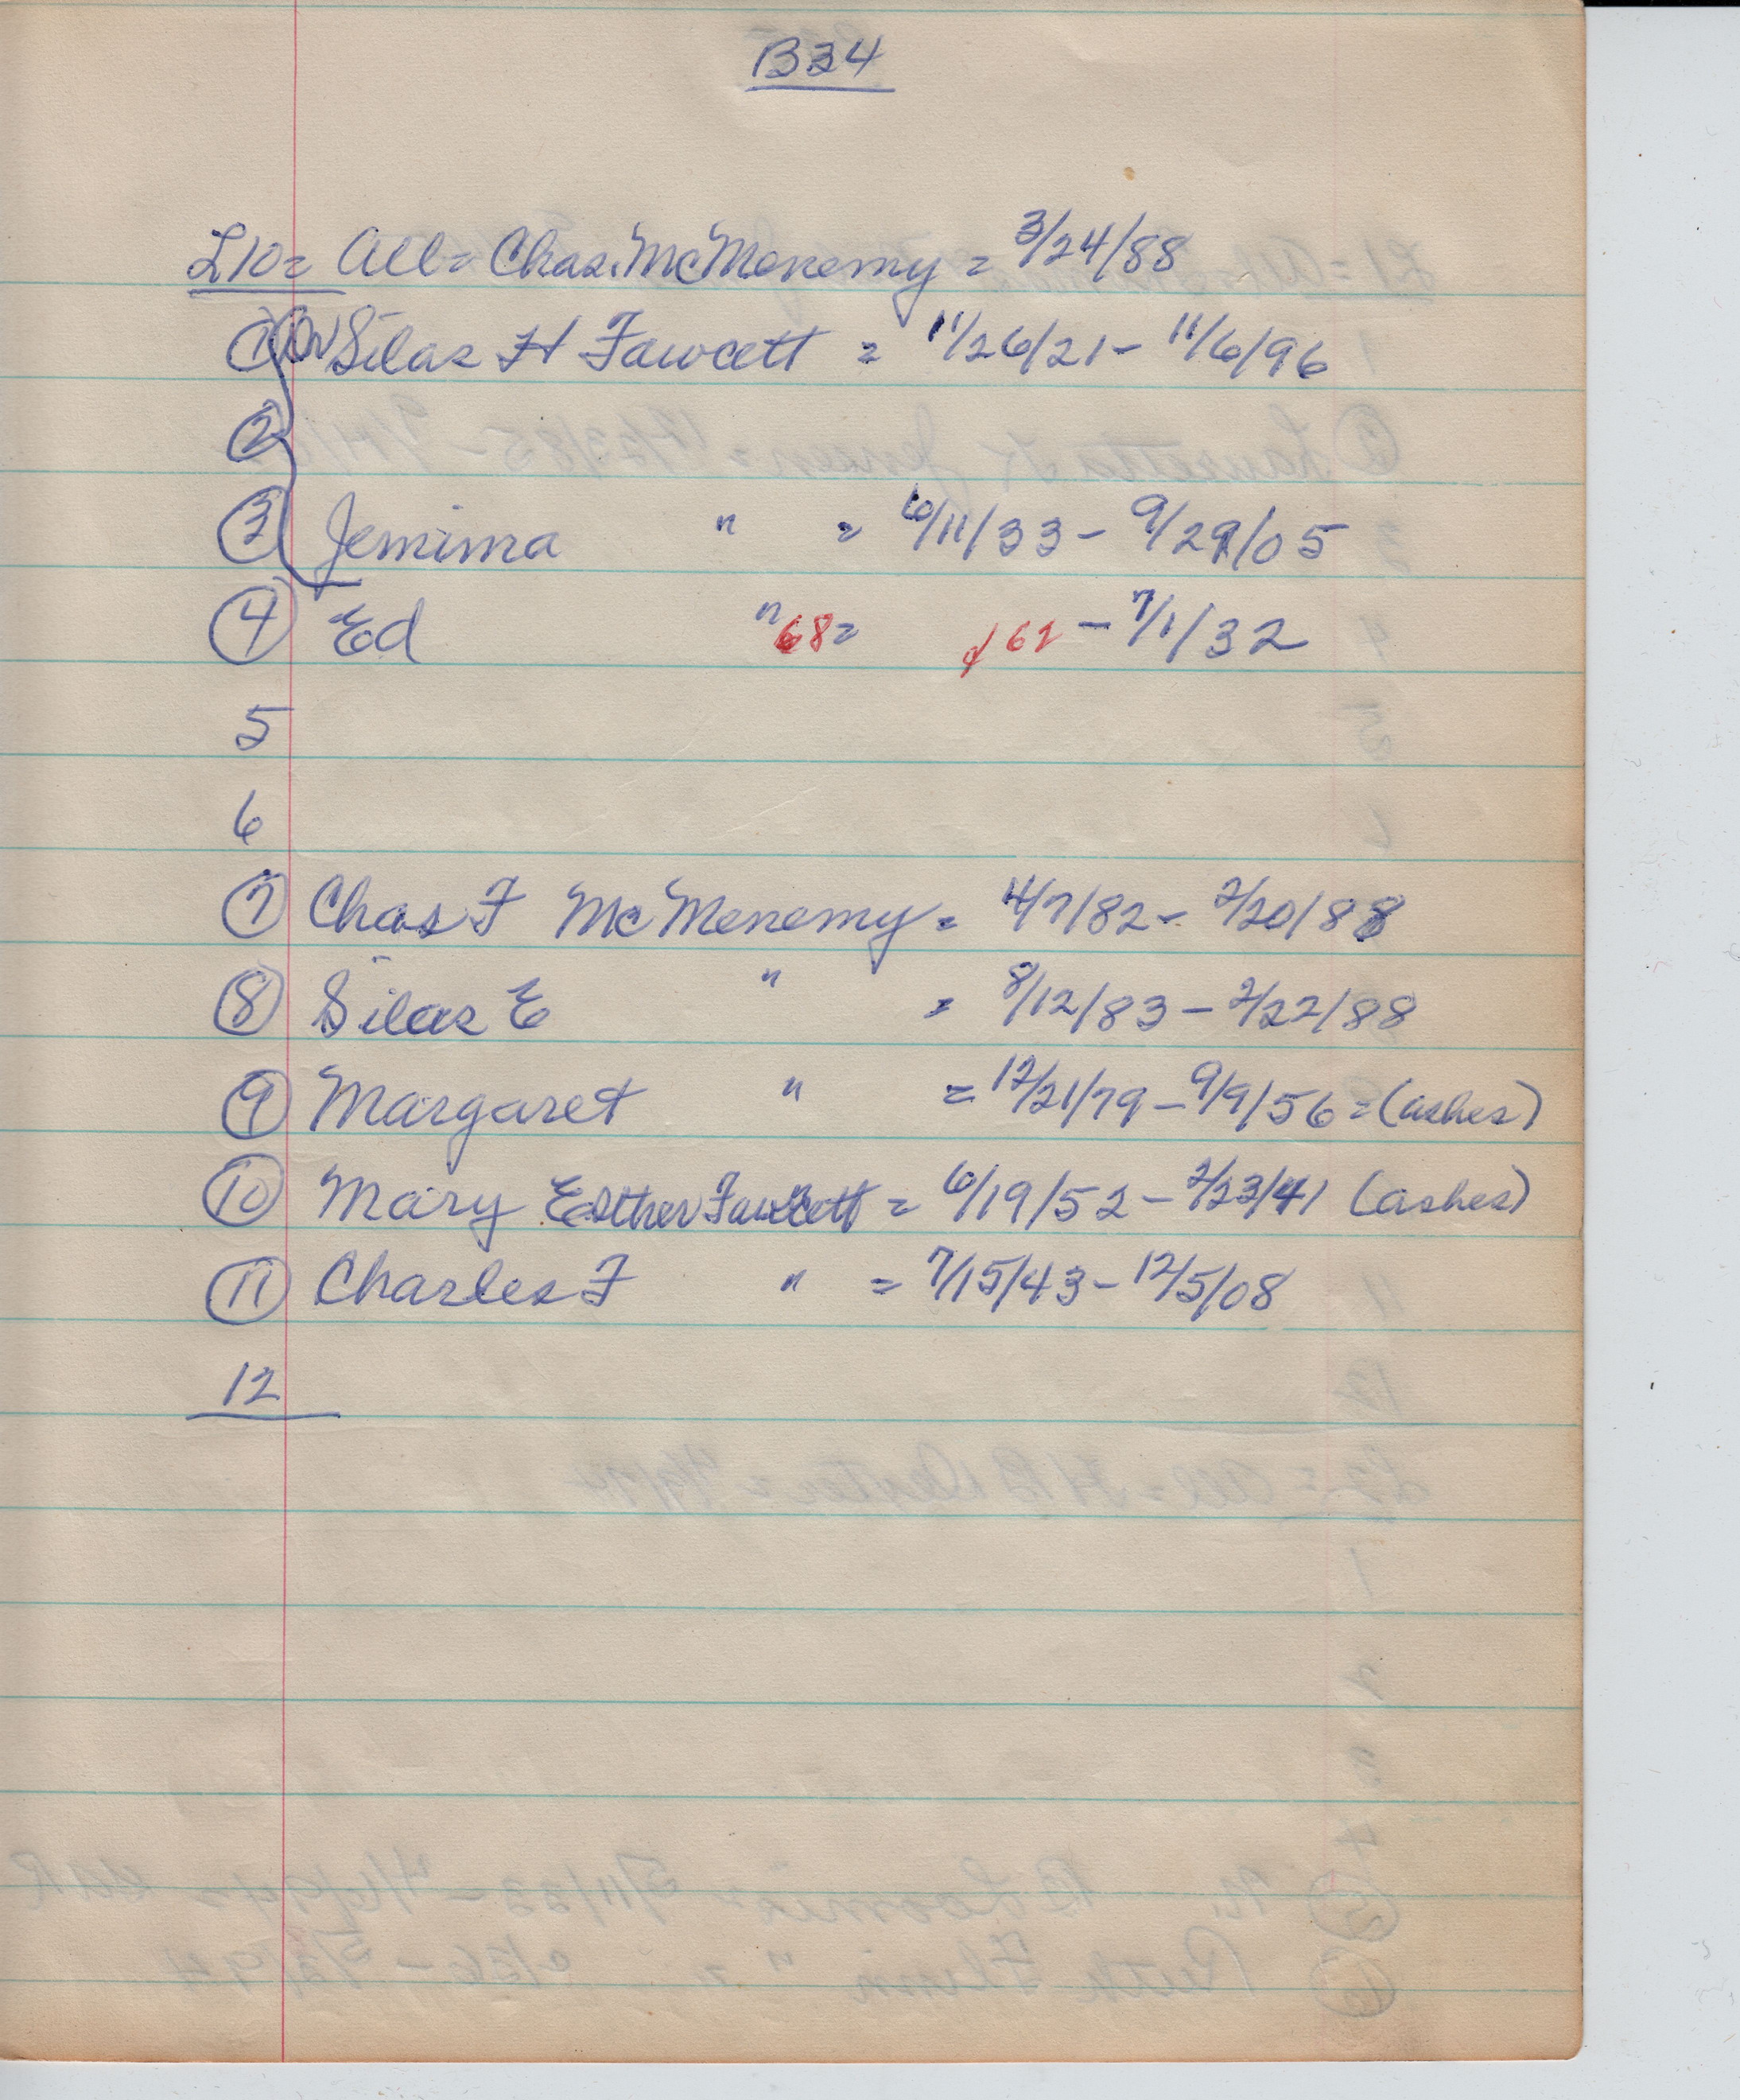 B34
L10= All= Chas. McMenemy = 3/24/88
1 Silas H Fawcett = 11/26/21 - 11/6/96
2
3 Jemima " = 6/11/33 - 9/29/05
4 Ed " 68= 62 - 7/1/32
5
6
7 Chas F McMenemy = 4/7/82 - 2/20/88
8 Silas E " = 8/12/83 - 2/22/88
9 Margaret " = 12/21/79 - 9/9/56 = (ashes)
10 Mary Esther Fawcett = 6/19/52 - 2/23/41 (ashes)
11 Charles F " = 7/15/43 - 12/5/08
12